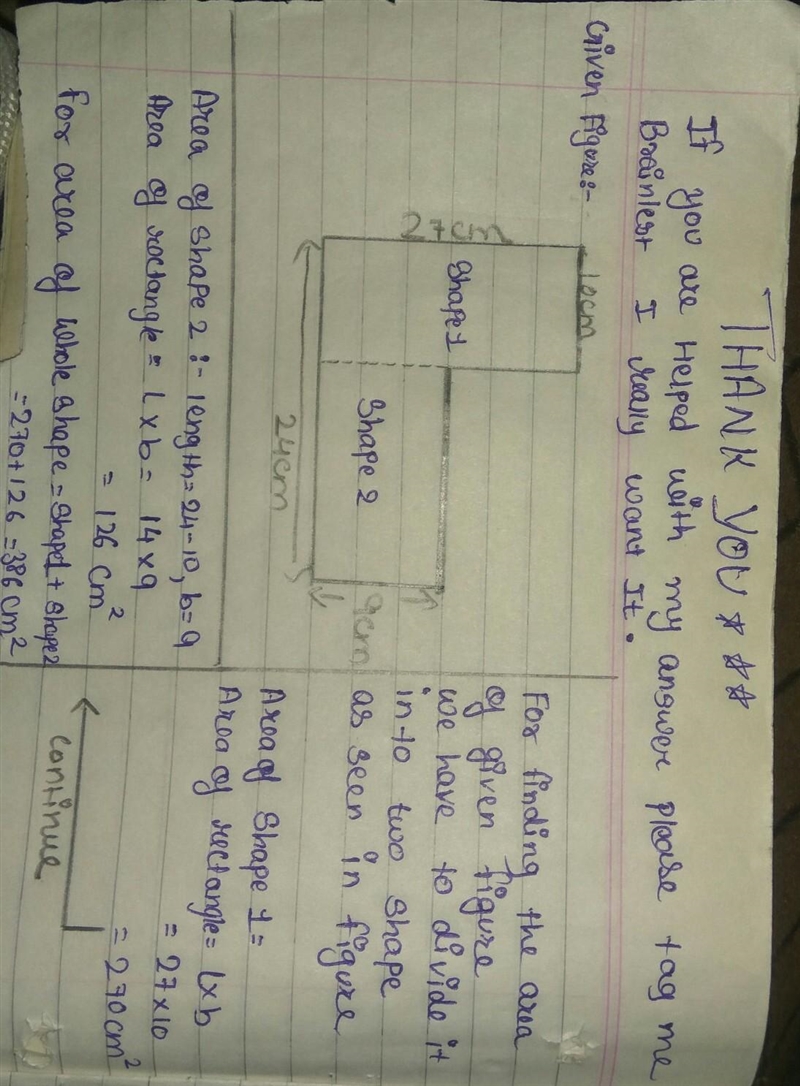 THANK YOU ***
If you are Helped with my answer please tag me
Brainlest I really want It.
Given figure:-
10cm
27cm
Shape 1
Shape 2
9cm
24cm
For finding the area
of given figure
we have to divide it
in to two shape
as seen in figure
Area of Shape 1 =
Area of rectangle = l x b
= 27 x 10
= 270 cm²
continue
Area of shape 2 :- length = 24-10, b=9
Area of rectangle = L x b = 14 x 9
= 126 cm²
for area of whole shape = shape1 + shape2
= 270 + 126 = 386 cm²